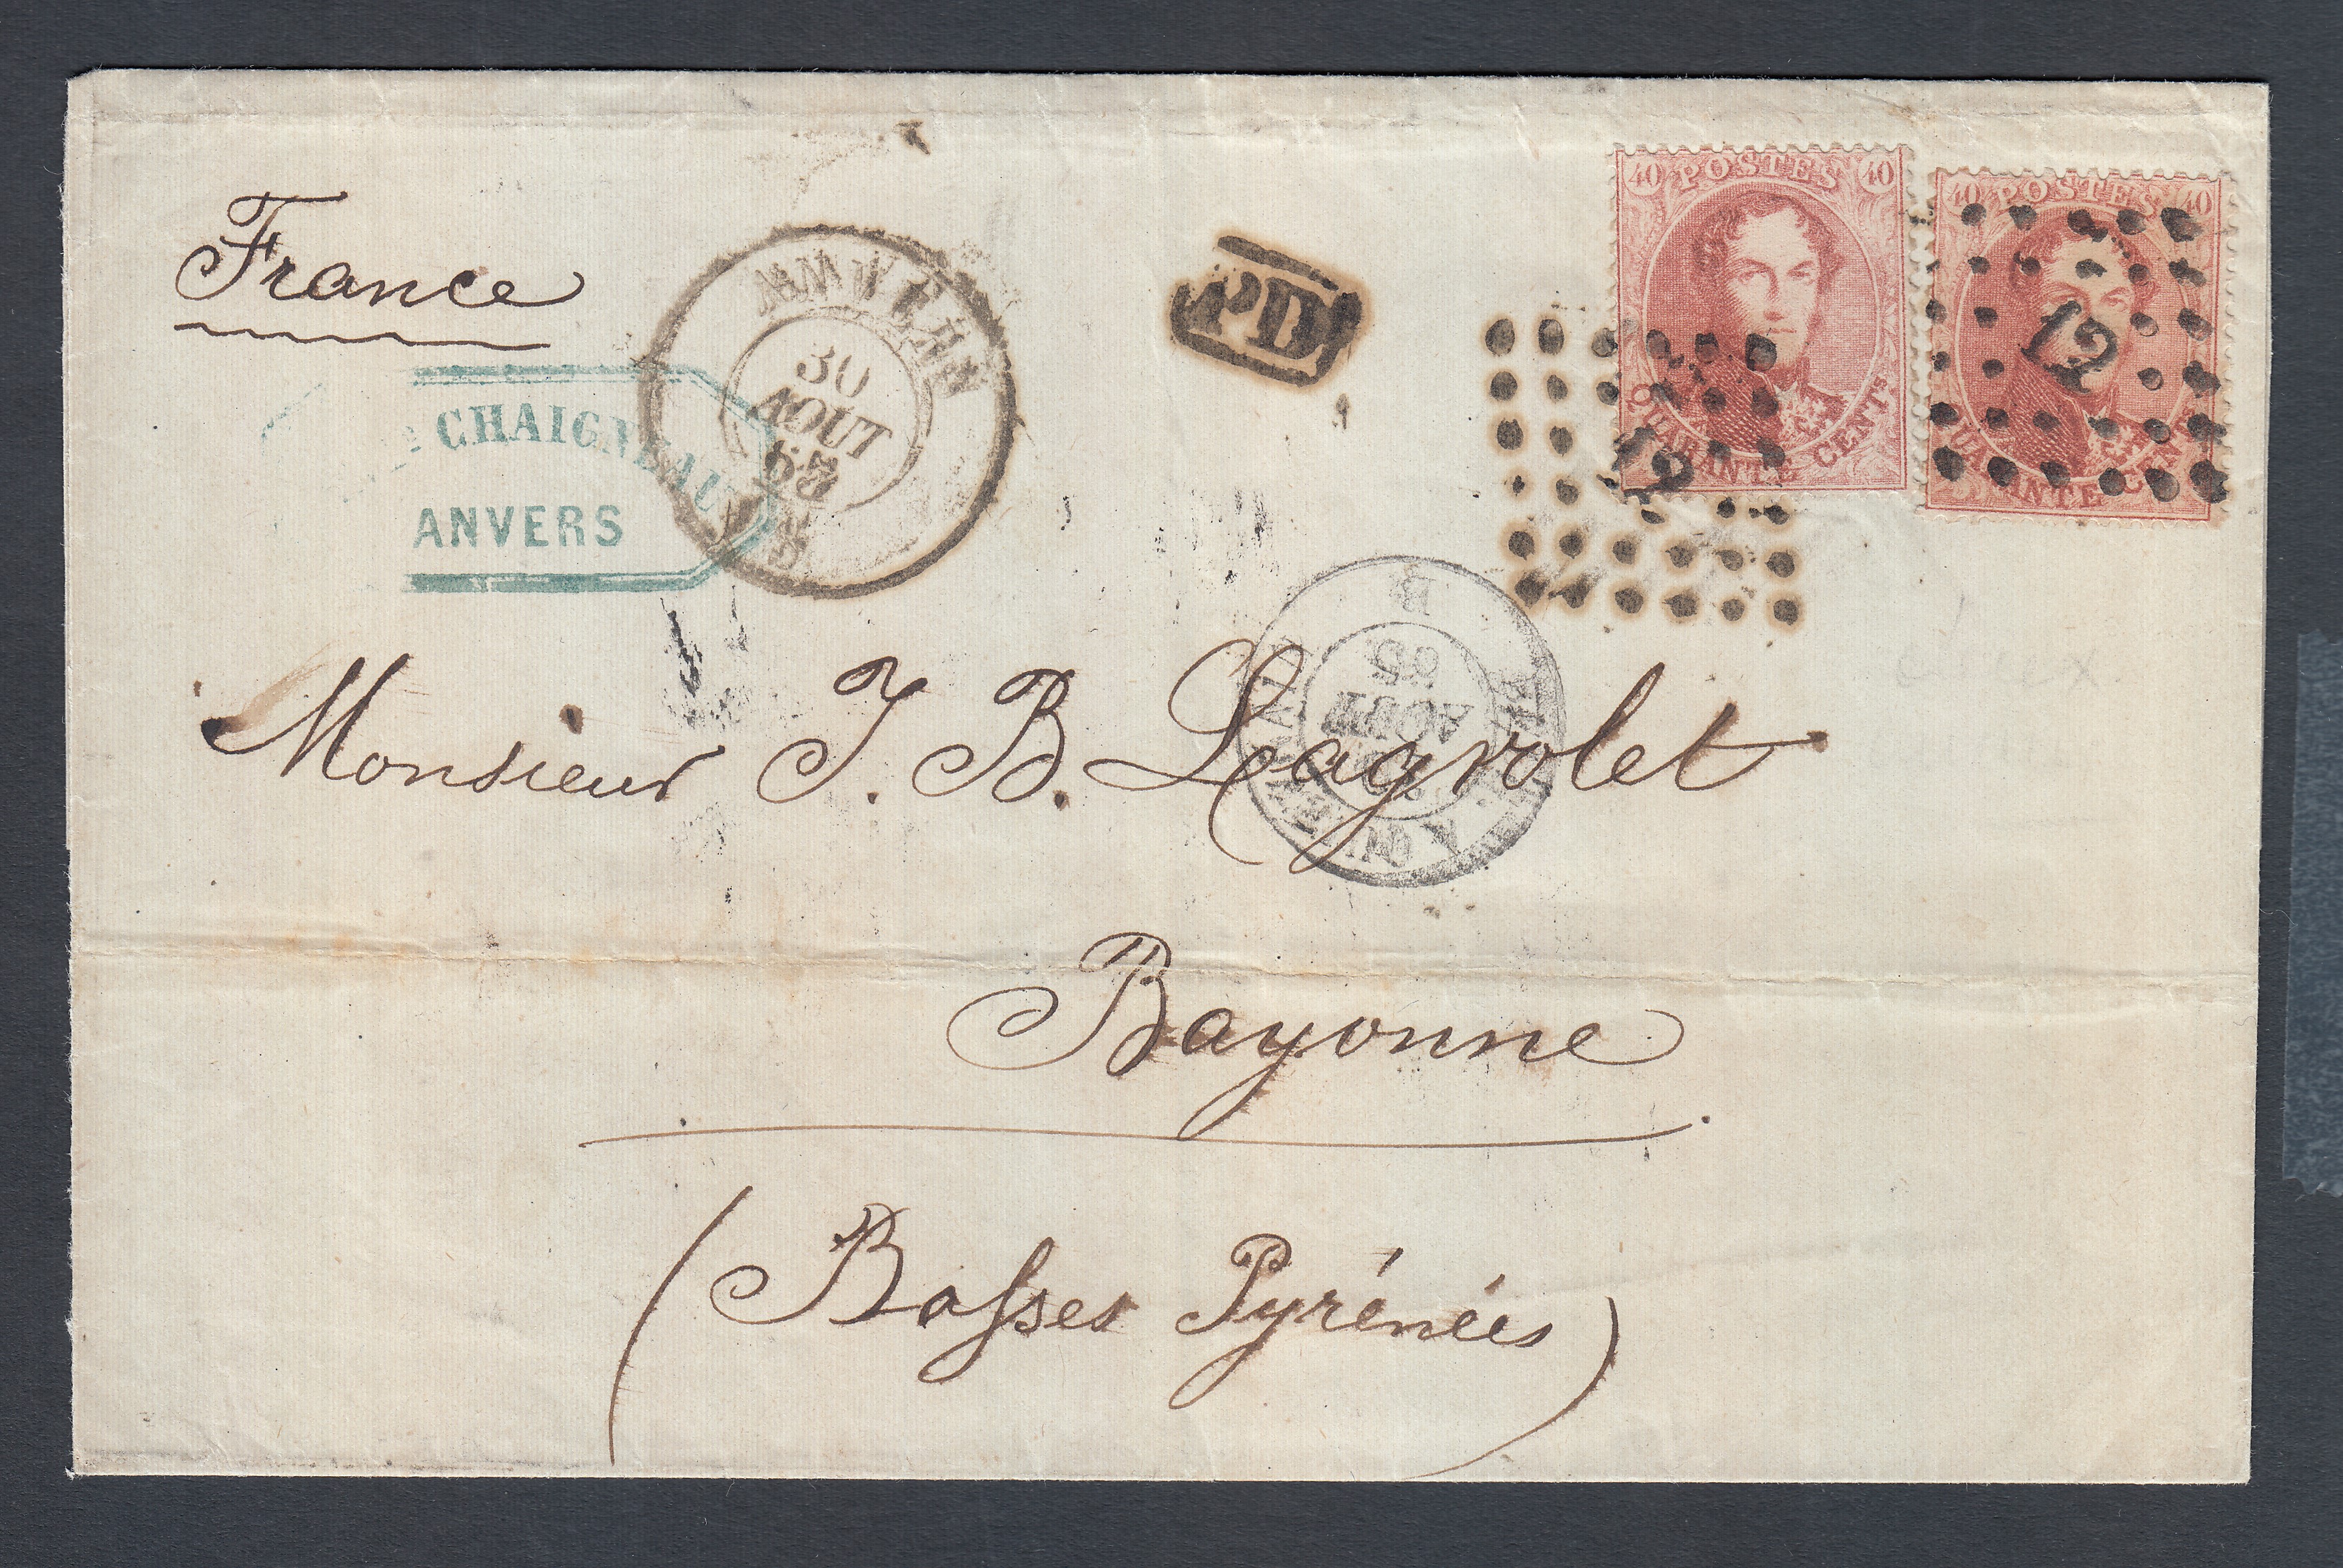 France
CHAIGNEAU
ANVERS
ANVERS
30
AOUT
65
PD
40 POSTES 40
QUARANTE CENTS
40 POSTES 40
12
QUARANTE CENTS
12
B
AOUT
65
Monsieur J. B. Lagrolet
Bayonne
(Basses Pyrénées)